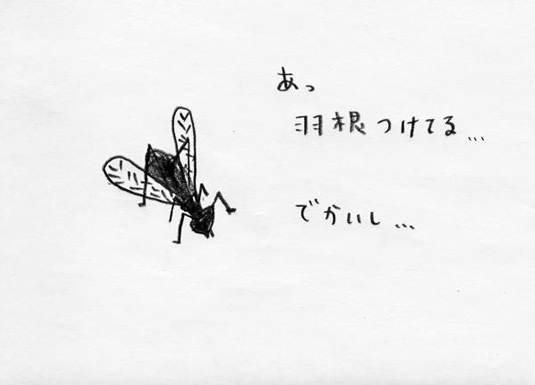 あっ
羽根つけてる...
でかいし...